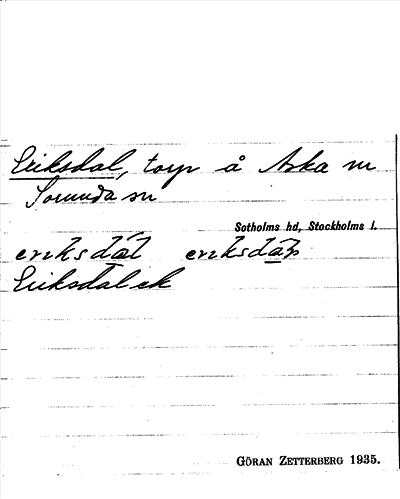 Eriksdal, torp å Aska nr
Sorunda sn
Sotholms hd, Stockholms l.
eriksdàl eriksdàṇ
Eriksdal ek
GÖRAN ZETTERBERG 1935.